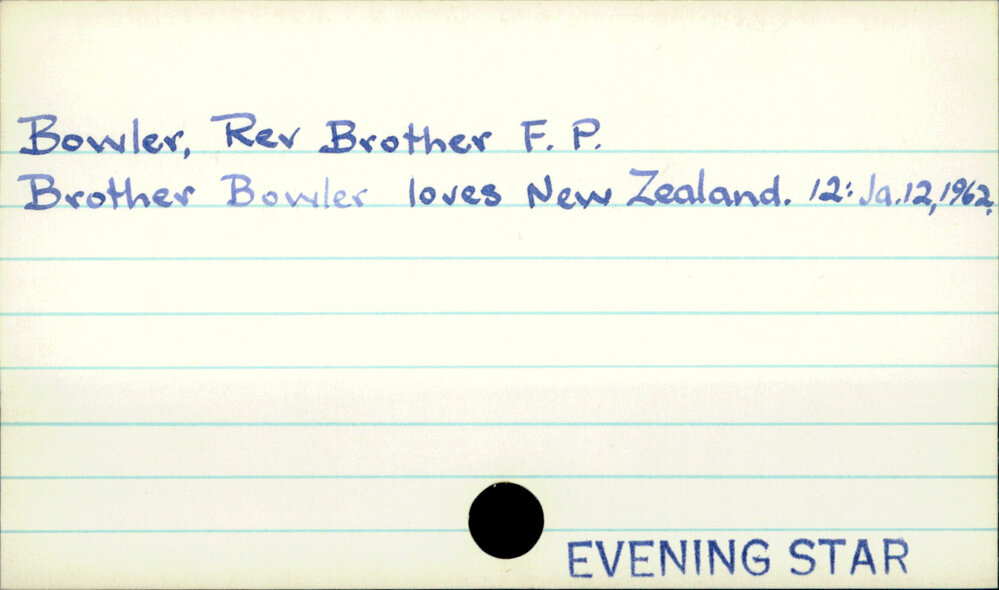 Bowler, Rev Brother F. P.
Brother Bowler loves New Zealand. 12: Ja.12,1962.
EVENING STAR